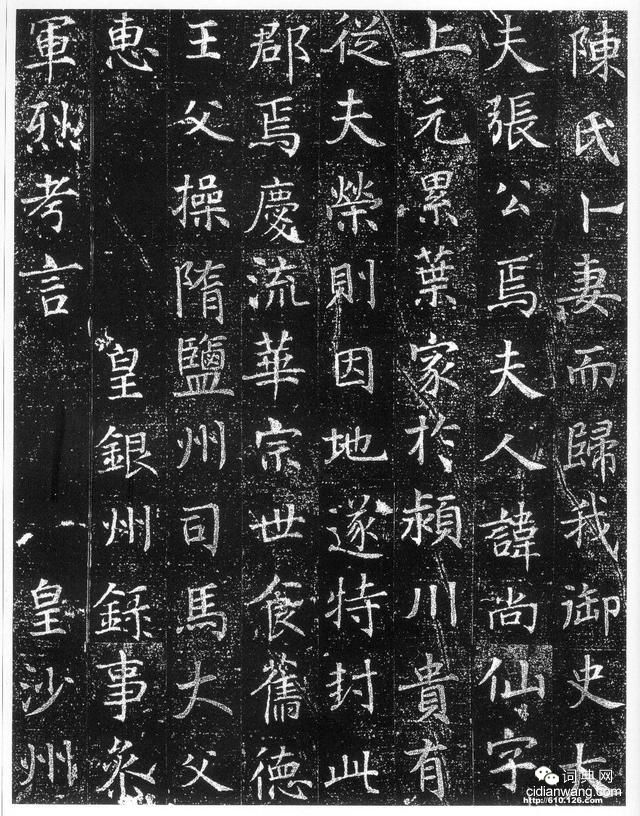 陳氏卜妻而歸我御史大
夫張公焉夫人諱尚仙字
上元累葉家於潁川貴有
從夫榮則因地遂特封此
郡焉慶流華宗世食舊德
王父操隋鹽州司馬大父
惠 皇銀州錄事參
軍烈考言 皇沙州
词典网
cidianwang.com
http://610.126.com